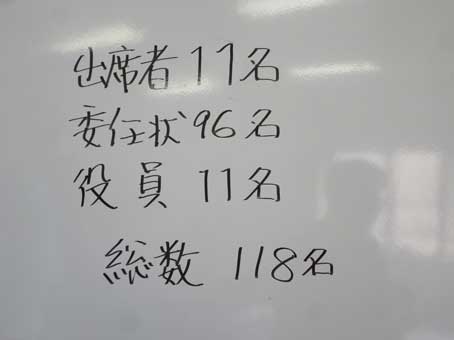 出席者 11名
委任状 96名
役員 11名
総数 118名